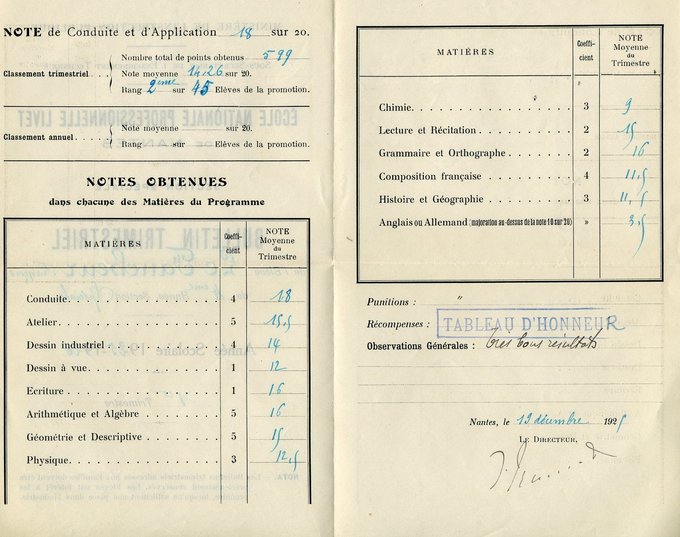 NOTE de Conduite et d'Application 18 sur 20.
Nombre total de points obtenus 599
Classement trimestriel Note moyenne 14,26 sur 20.
Rang 2ème sur 45 Elèves de la promotion.
Note moyenne sur 20.
Classement annuel
Rang sur Elèves de la promotion.
NOTES OBTENUES
dans chacune des Matières du Programme
MATIÈRES Coefficient NOTE Moyenne du Trimestre
Conduite 4 18
Atelier 5 15,5
Dessin industriel 4 14
Dessin à vue 1 12
Ecriture 1 16
Arithmétique et Algèbre 5 16
Géométrie et Descriptive 5 15
Physique 3 12,5
MATIÈRES Coefficient NOTE Moyenne du Trimestre
Chimie 3 9
Lecture et Récitation 2 15
Grammaire et Orthographe 2 16
Composition française 4 11,5
Histoire et Géographie 3 11,5
Anglais ou Allemand (majoration au-dessus de la note 10 sur 20) » 3,5
Punitions : "
Récompenses : TABLEAU D'HONNEUR
Observations Générales : très bons résultats
Nantes, le 12 décembre 1925
LE DIRECTEUR,